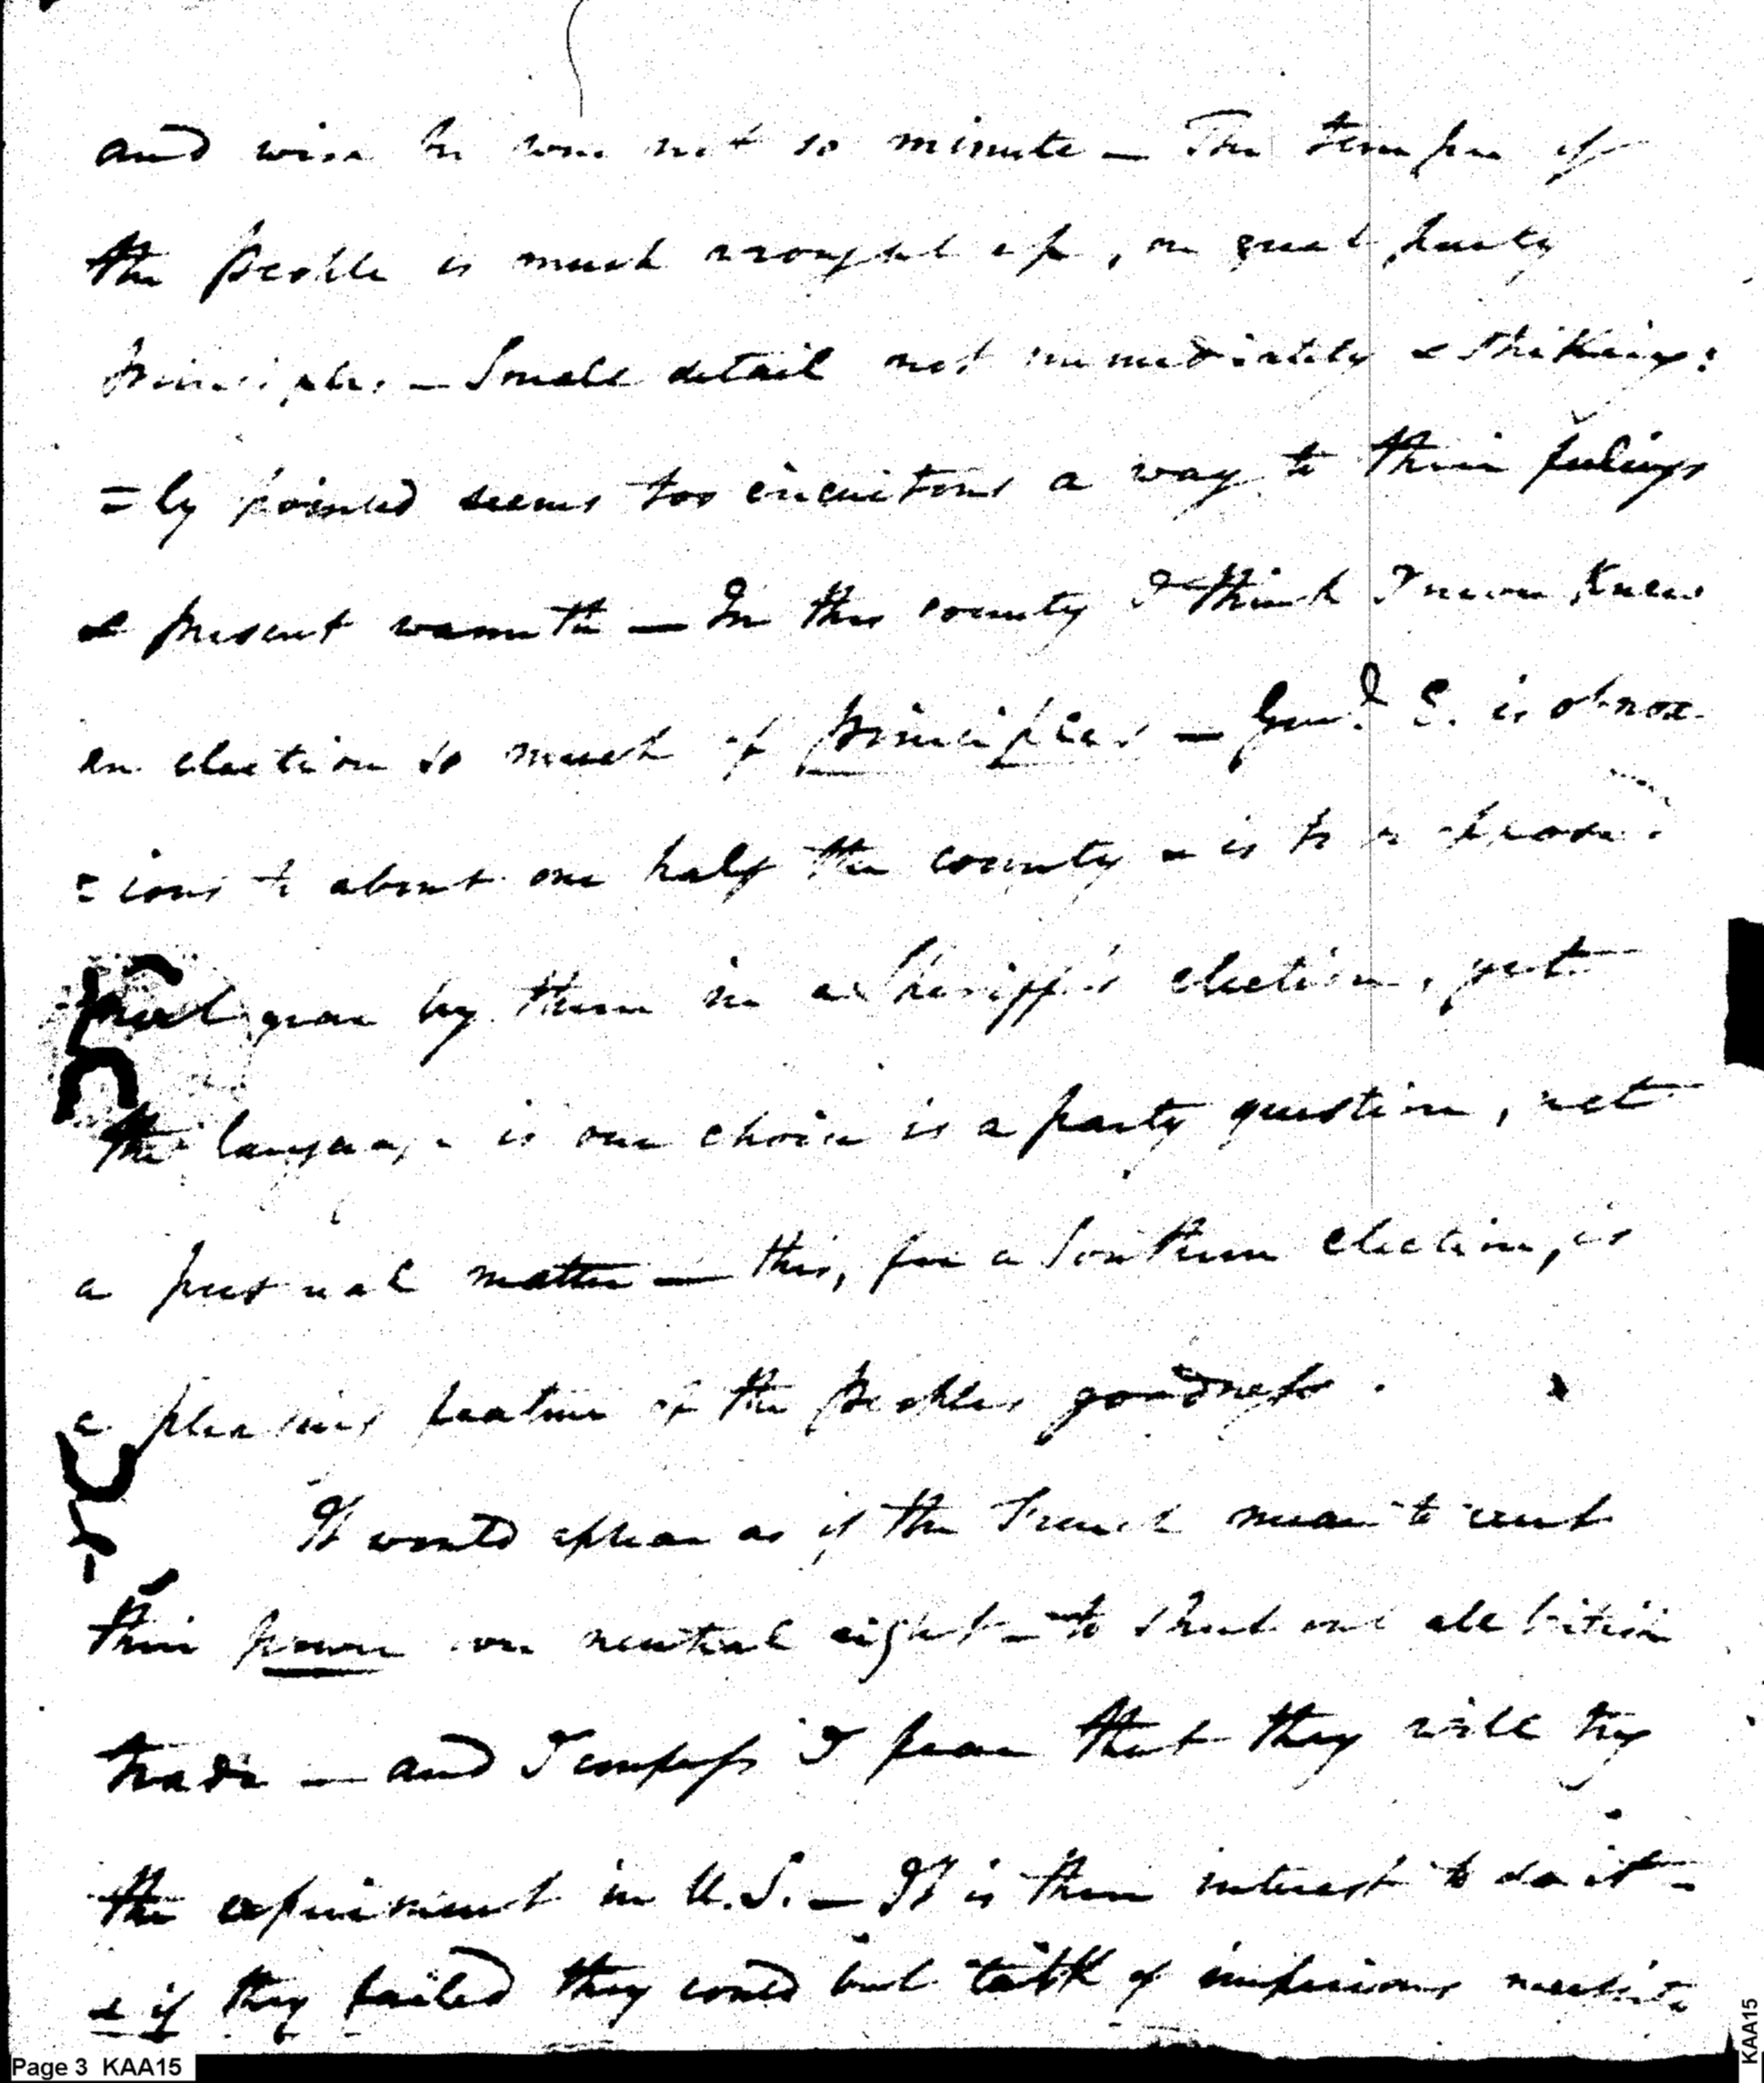 and wish he were not so minute — The temper of
the people is much wrought up, on great party
principles — Small detail not immediately & strikeing:
=ly pointed seems too circuitous a way to their feelings
& present warmth — In this county I think I never knew
an election so much of principles — Genl. S. is obnox
=ious to about one half the county & is to
by them in a Sheriff's election, yet
the language is our choice is a party question, not
a personal matter — this, for a Southern election, is
a pleasing feature of the peoples goodness.
It would appear as if the French mean to
their power over neutral right — to shut out all British
trade — and I confess I fear that they will try
the experiment in U.S. — It is their interest to do it —
& if they failed they could but talk of imperious necessity
Page 3 KAA15
KAA15